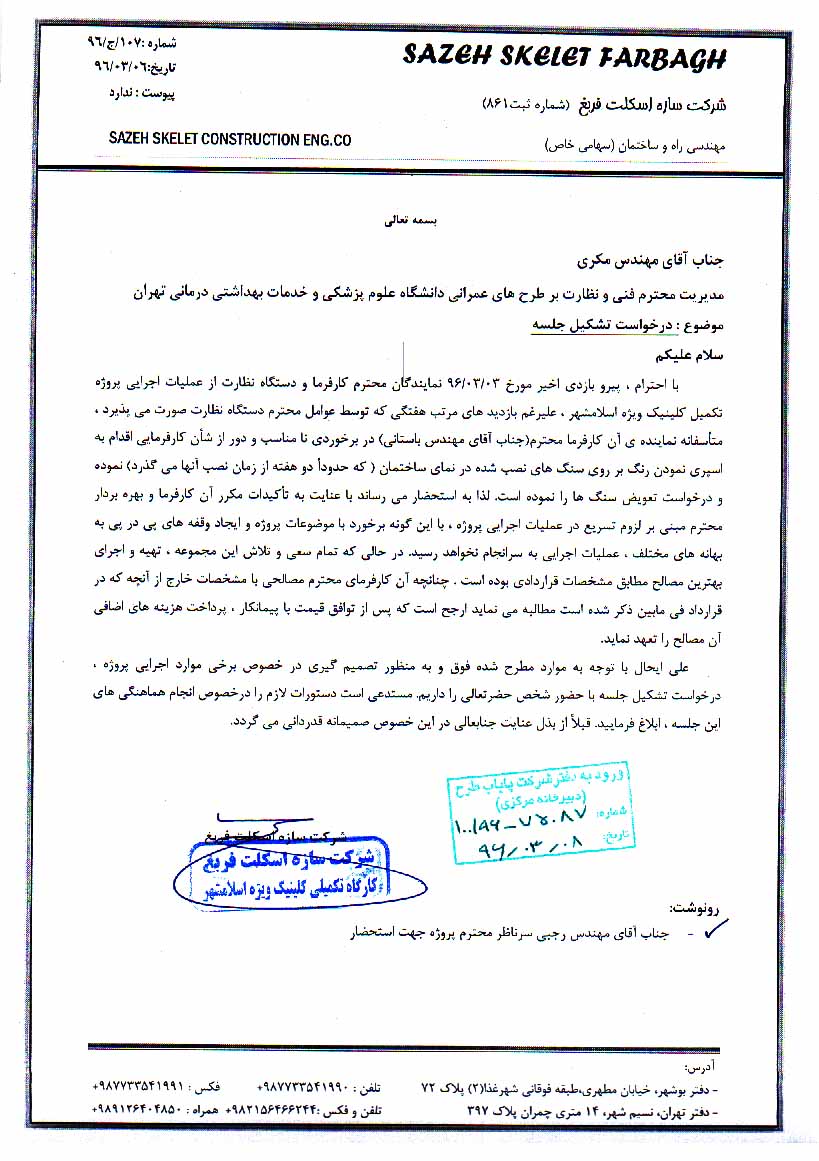 SAZEH SKELET FARBAGH
شماره :۱۰۷/ج/۹۶
تاریخ:۹۶/۰۳/۰۶
شرکت سازه اسکلت فربغ (شماره ثبت ۸۶۱)
پیوست : ندارد
SAZEH SKELET CONSTRUCTION ENG.CO
مهندسی راه و ساختمان (سهامی خاص)
بسمه تعالی
جناب آقای مهندس مکری
مدیریت محترم فنی و نظارت بر طرح های عمرانی دانشگاه علوم پزشکی و خدمات بهداشتی درمانی تهران
موضوع : درخواست تشکیل جلسه
سلام علیکم
با احترام ، پیرو بازدی اخیر مورخ ۹۶/۰۳/۰۳ نمایندگان محترم کارفرما و دستگاه نظارت از عملیات اجرایی پروژه
تکمیل کلینیک ویژه اسلامشهر ، علیرغم بازدید های مرتب هفتگی که توسط عوامل محترم دستگاه نظارت صورت می پذیرد ،
متأسفانه نماینده ی آن کارفرما محترم(جناب آقای مهندس باستانی) در برخوردی نا مناسب و دور از شأن کارفرمایی اقدام به
اسپری نمودن رنگ بر روی سنگ های نصب شده در نمای ساختمان ( که حدوداً دو هفته از زمان نصب آنها می گذرد) نموده
و درخواست تعویض سنگ ها را نموده است. لذا به استحضار می رساند با عنایت به تأکیدات مکرر آن کارفرما و بهره بردار
محترم مبنی بر لزوم تسریع در عملیات اجرایی پروژه ، با این گونه برخورد با موضوعات پروژه و ایجاد وقفه های پی در پی به
بهانه های مختلف ، عملیات اجرایی به سرانجام نخواهد رسید. در حالی که تمام سعی و تلاش این مجموعه ، تهیه و اجرای
بهترین مصالح مطابق مشخصات قراردادی بوده است . چنانچه آن کارفرمای محترم مصالحی با مشخصات خارج از آنچه که در
قرارداد فی مابین ذکر شده است مطالبه می نماید ارجح است که پس از توافق قیمت با پیمانکار ، پرداخت هزینه های اضافی
آن مصالح را تعهد نماید.
علی ایحال با توجه به موارد مطرح شده فوق و به منظور تصمیم گیری در خصوص برخی موارد اجرایی پروژه ،
درخواست تشکیل جلسه با حضور شخص حضرتعالی را داریم. مستدعی است دستورات لازم را درخصوص انجام هماهنگی های
این جلسه ، ابلاغ فرمایید. قبلاً از بذل عنایت جنابعالی در این خصوص صمیمانه قدردانی می گردد.
ورود به دفتر شرکت پایاب طرح
(دبیرخانه مرکزی)
شماره: ۱۰۰/۹۶-۷۵۰۸۷
تاریخ: ۹۶/۰۳/۰۸
شرکت سازه اسکلت فربغ
شرکت سازه اسکلت فربغ
کارگاه تکمیلی کلینیک ویژه اسلامشهر
رونوشت:
- جناب آقای مهندس رجبی سرناظر محترم پروژه جهت استحضار
آدرس:
- دفتر بوشهر، خیابان مطهری،طبقه فوقانی شهرغذا(۲) پلاک ۷۲ تلفن : ۹۸۷۷۳۳۵۴۱۹۹۰+ فکس : ۹۸۷۷۳۳۵۴۱۹۹۱+
- دفتر تهران، نسیم شهر، ۱۴ متری چمران پلاک ۳۹۷ تلفن و فکس :۹۸۲۱۵۶۴۶۶۲۴۴+ همراه : ۹۸۹۱۲۶۴۰۴۸۵۰+